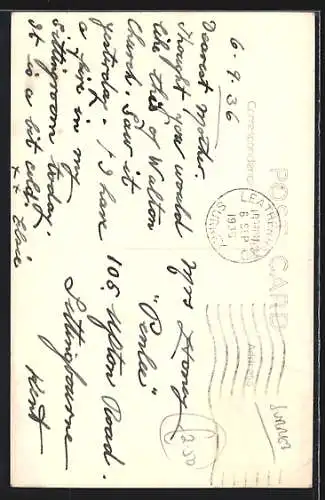 6.9.36
Dearest Mother.
Thought you would
like this of Walton
Church. Saw it
yesterday. I have
a fire in my
Sittingroom today.
It is a bit cold.
xx Elsie
POST CARD
Correspondence
Address
LEATHERHEAD
6 SEP
1936
SURREY
Mrs
"Penlee"
105 Upton Road.
Sittingbourne
Kent
250
SURREY